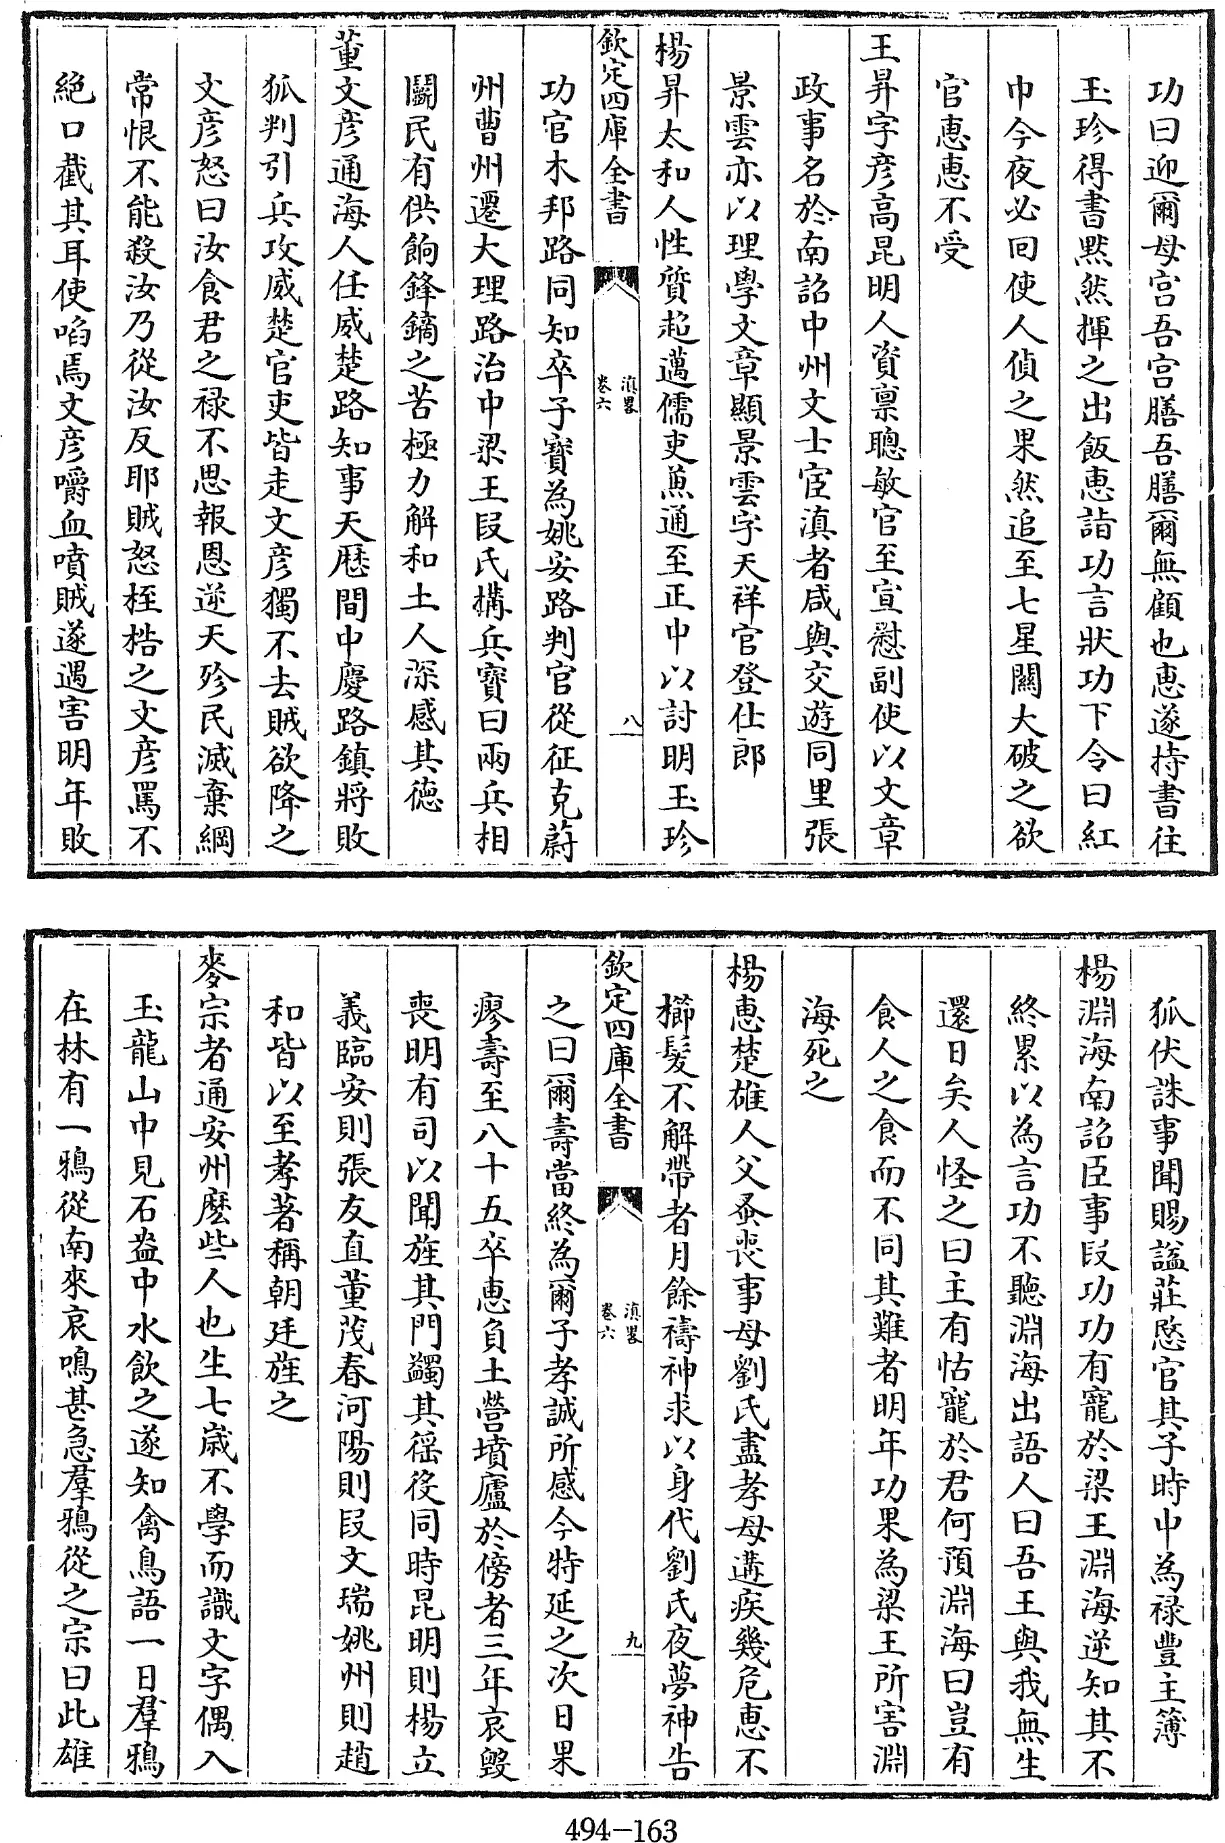 功曰迎爾母宫吾宫膳吾膳爾無顧也惠遂持書往
玉珍得書黙然揮之出飯惠詣功言狀功下令曰紅
巾今夜必回使人偵之果然追至七星關大破之欲
官惠惠不受
王昇字彦高昆明人資禀聰敏官至宣慰副使以文章
政事名於南詔中州文士宦滇者咸與交遊同里張
景雲亦以理學文章顯景雲字天祥官登仕郎
楊昇太和人性質超邁儒吏兼通至正中以討明玉珍
欽定四庫全書
滇畧
卷六
八
功官木邦路同知卒子寳為姚安路判官從征克蔚
州曹州遷大理路治中梁王段氏搆兵寳曰兩兵相
鬬民有供餉鋒鏑之苦極力解和土人深感其德
董文彦通海人任威楚路知事天歴間中慶路鎮將敗
狐判引兵攻威楚官吏皆走文彦獨不去賊欲降之
文彦怒曰汝食君之禄不思報恩逆天殄民滅棄綱
常恨不能殺汝乃從汝反耶賊怒桎梏之文彦罵不
絶口截其耳使啗焉文彦嚼血噴賊遂遇害明年敗
狐伏誅事聞賜諡莊愍官其子時中為禄豐主簿
楊淵海南詔臣事段功功有寵於梁王淵海逆知其不
終累以為言功不聽淵海出語人曰吾王與我無生
還日矣人怪之曰主有怙寵於君何預淵海曰豈有
食人之食而不同其難者明年功果為梁王所害淵
海死之
楊惠楚雄人父蚤喪事母劉氏盡孝母遘疾幾危惠不
櫛髮不解帶者月餘禱神求以身代劉氏夜夢神告
欽定四庫全書
滇畧
卷六
九
之曰爾壽當終為爾子孝誠所感今特延之次日果
瘳壽至八十五卒惠負土營墳廬於傍者三年哀毁
喪明有司以聞旌其門蠲其徭役同時昆明則楊立
義臨安則張友直董茂春河陽則段文瑞姚州則趙
和皆以至孝著稱朝廷旌之
麥宗者通安州麽些人也生七歳不學而識文字偶入
玉龍山中見石盎中水飲之遂知禽鳥語一日羣鴉
在林有一鴉從南來哀鳴甚急羣鴉從之宗曰此雄
494-163